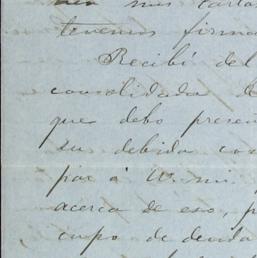 mis cartas
tenemos firma
Recibí del
consolidada
que debo presen
su debida co
par á W. mi
acerca de eso, p
cupo de deuda